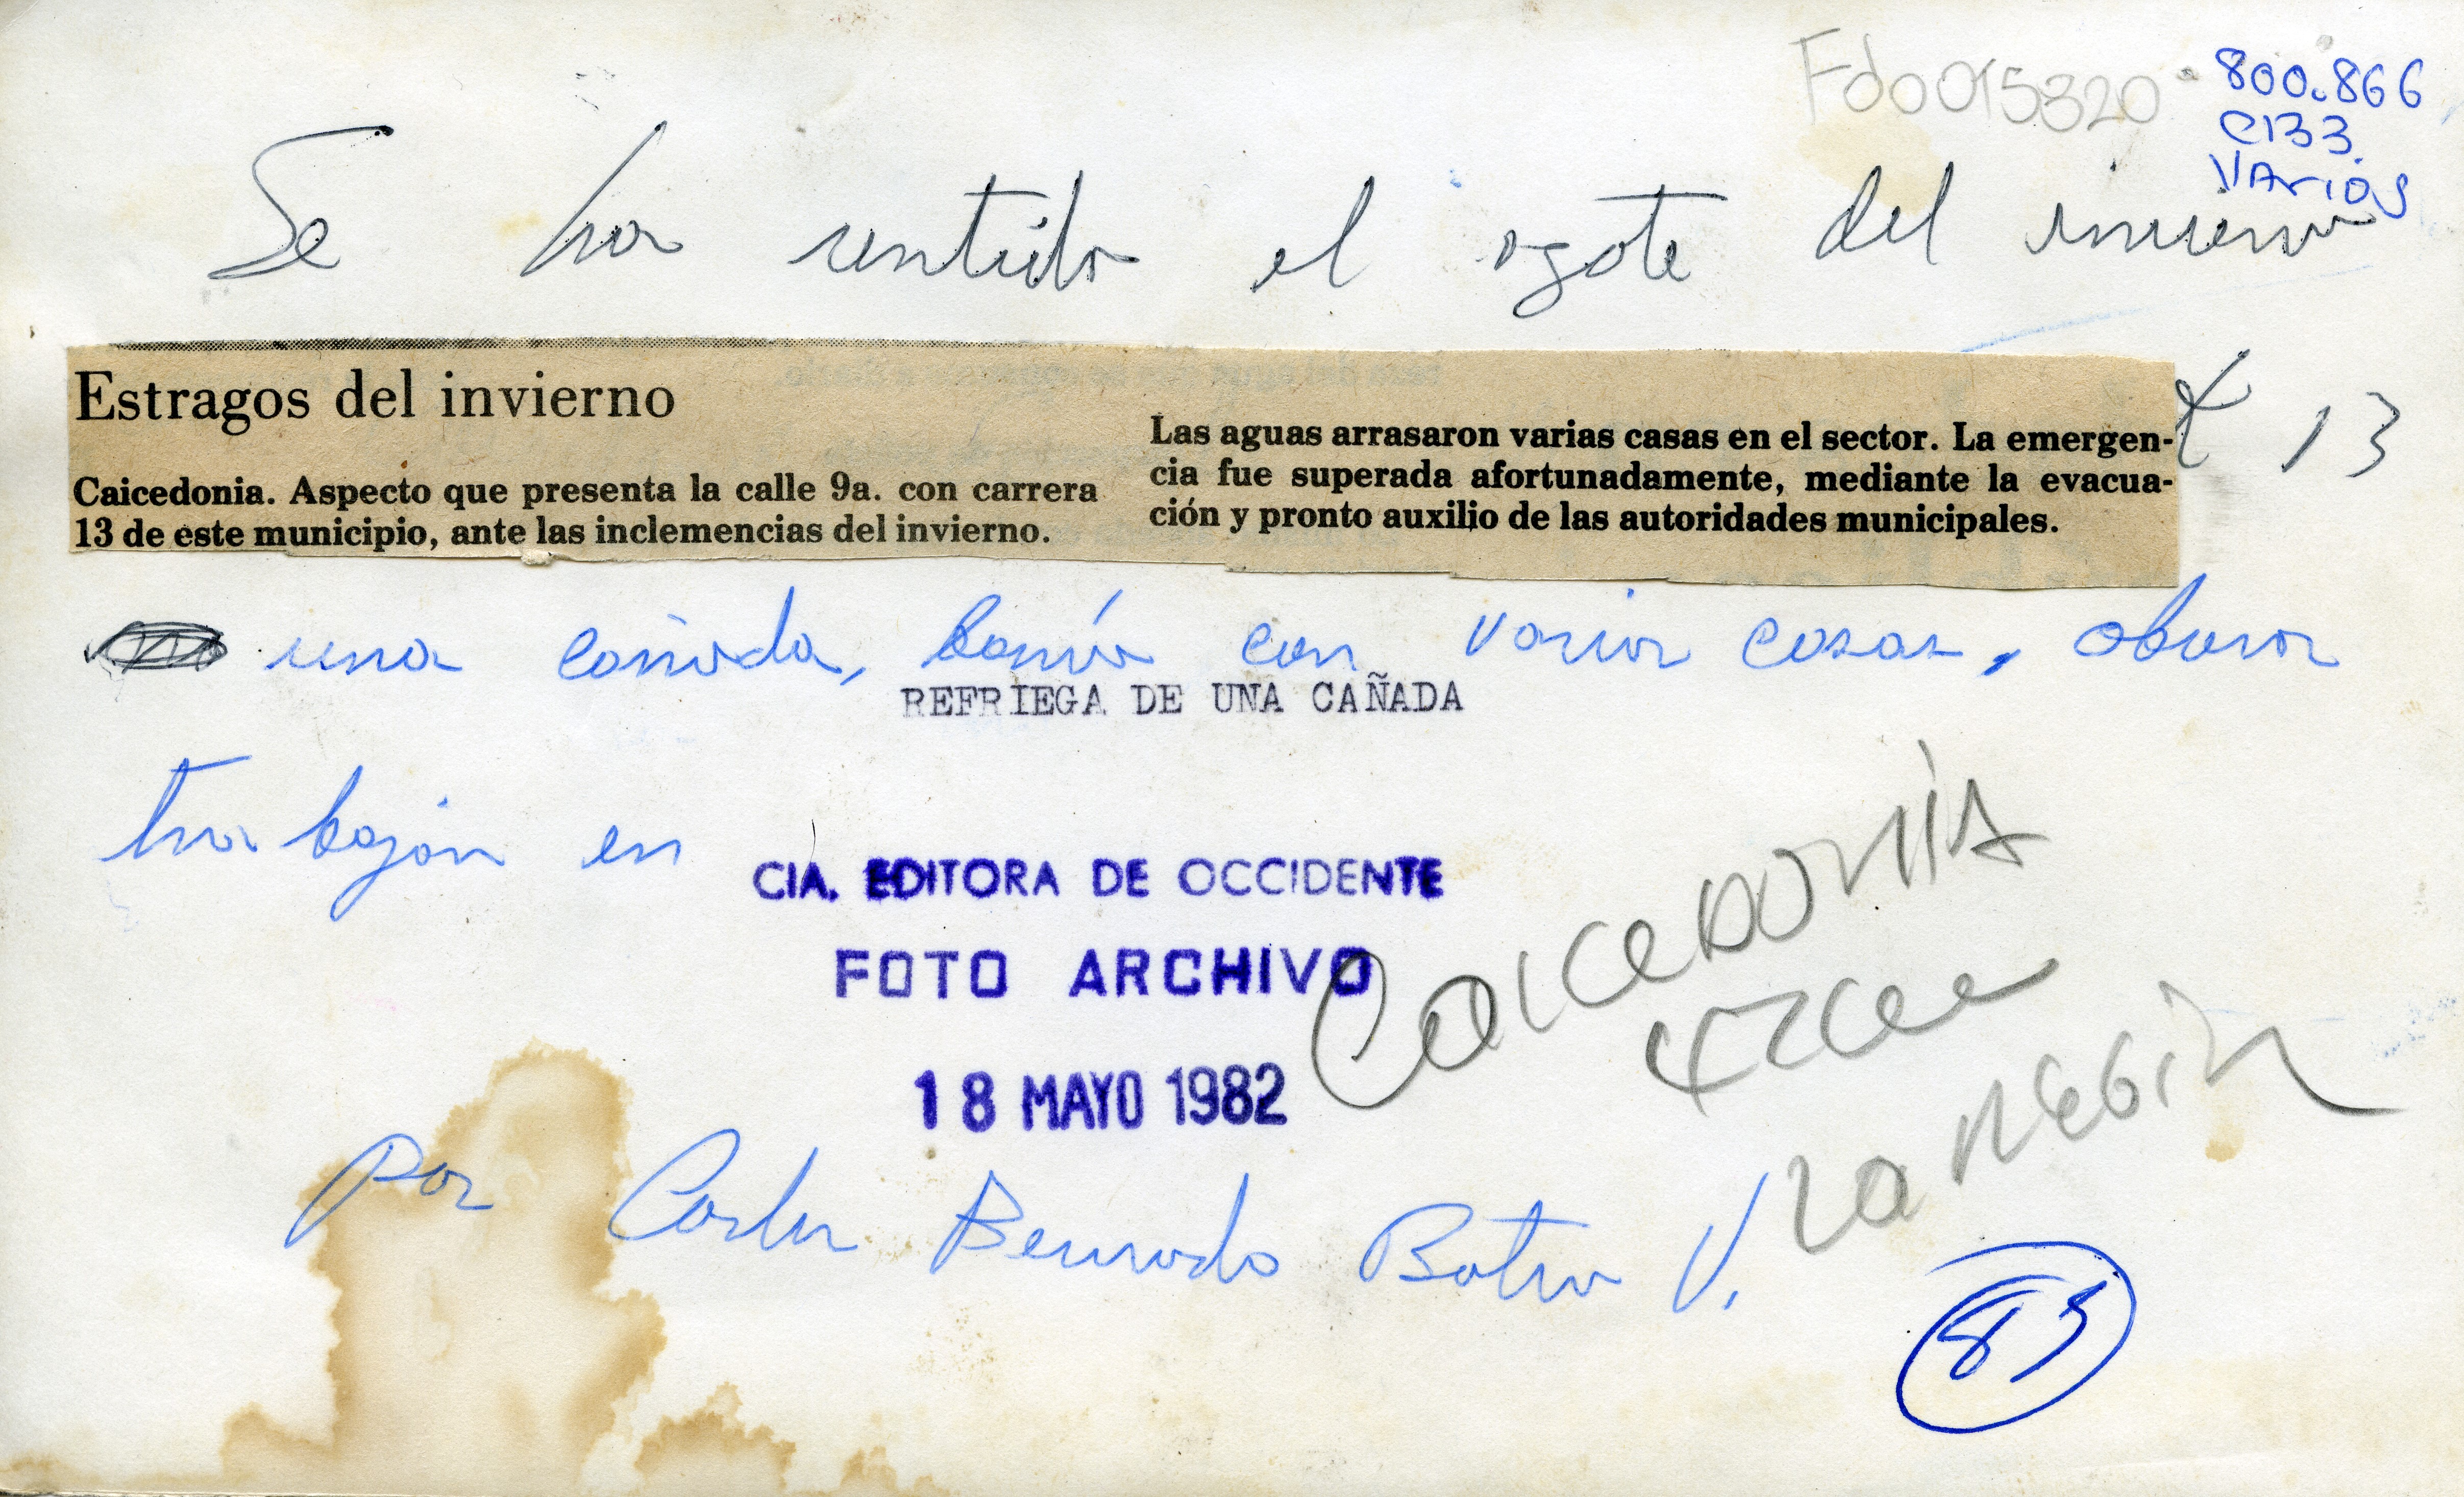 Fdo015320
800.866
C133.
VArios
Se ha sentido el azote del invierno
Estragos del invierno
Caicedonia. Aspecto que presenta la calle 9a. con carrera
13 de este municipio, ante las inclemencias del invierno.
Las aguas arrasaron varias casas en el sector. La emergen-
cia fue superada afortunadamente, mediante la evacua-
ción y pronto auxilio de las autoridades municipales.
13
una cañada, con varias casas, obreros
REFRIEGA DE UNA CAÑADA
trabajan en
CIA. EDITORA DE OCCIDENTE
FOTO ARCHIVO
18 MAYO 1982
CaiceDoniA
La
Por Carlos Bernardo Botero V.
85